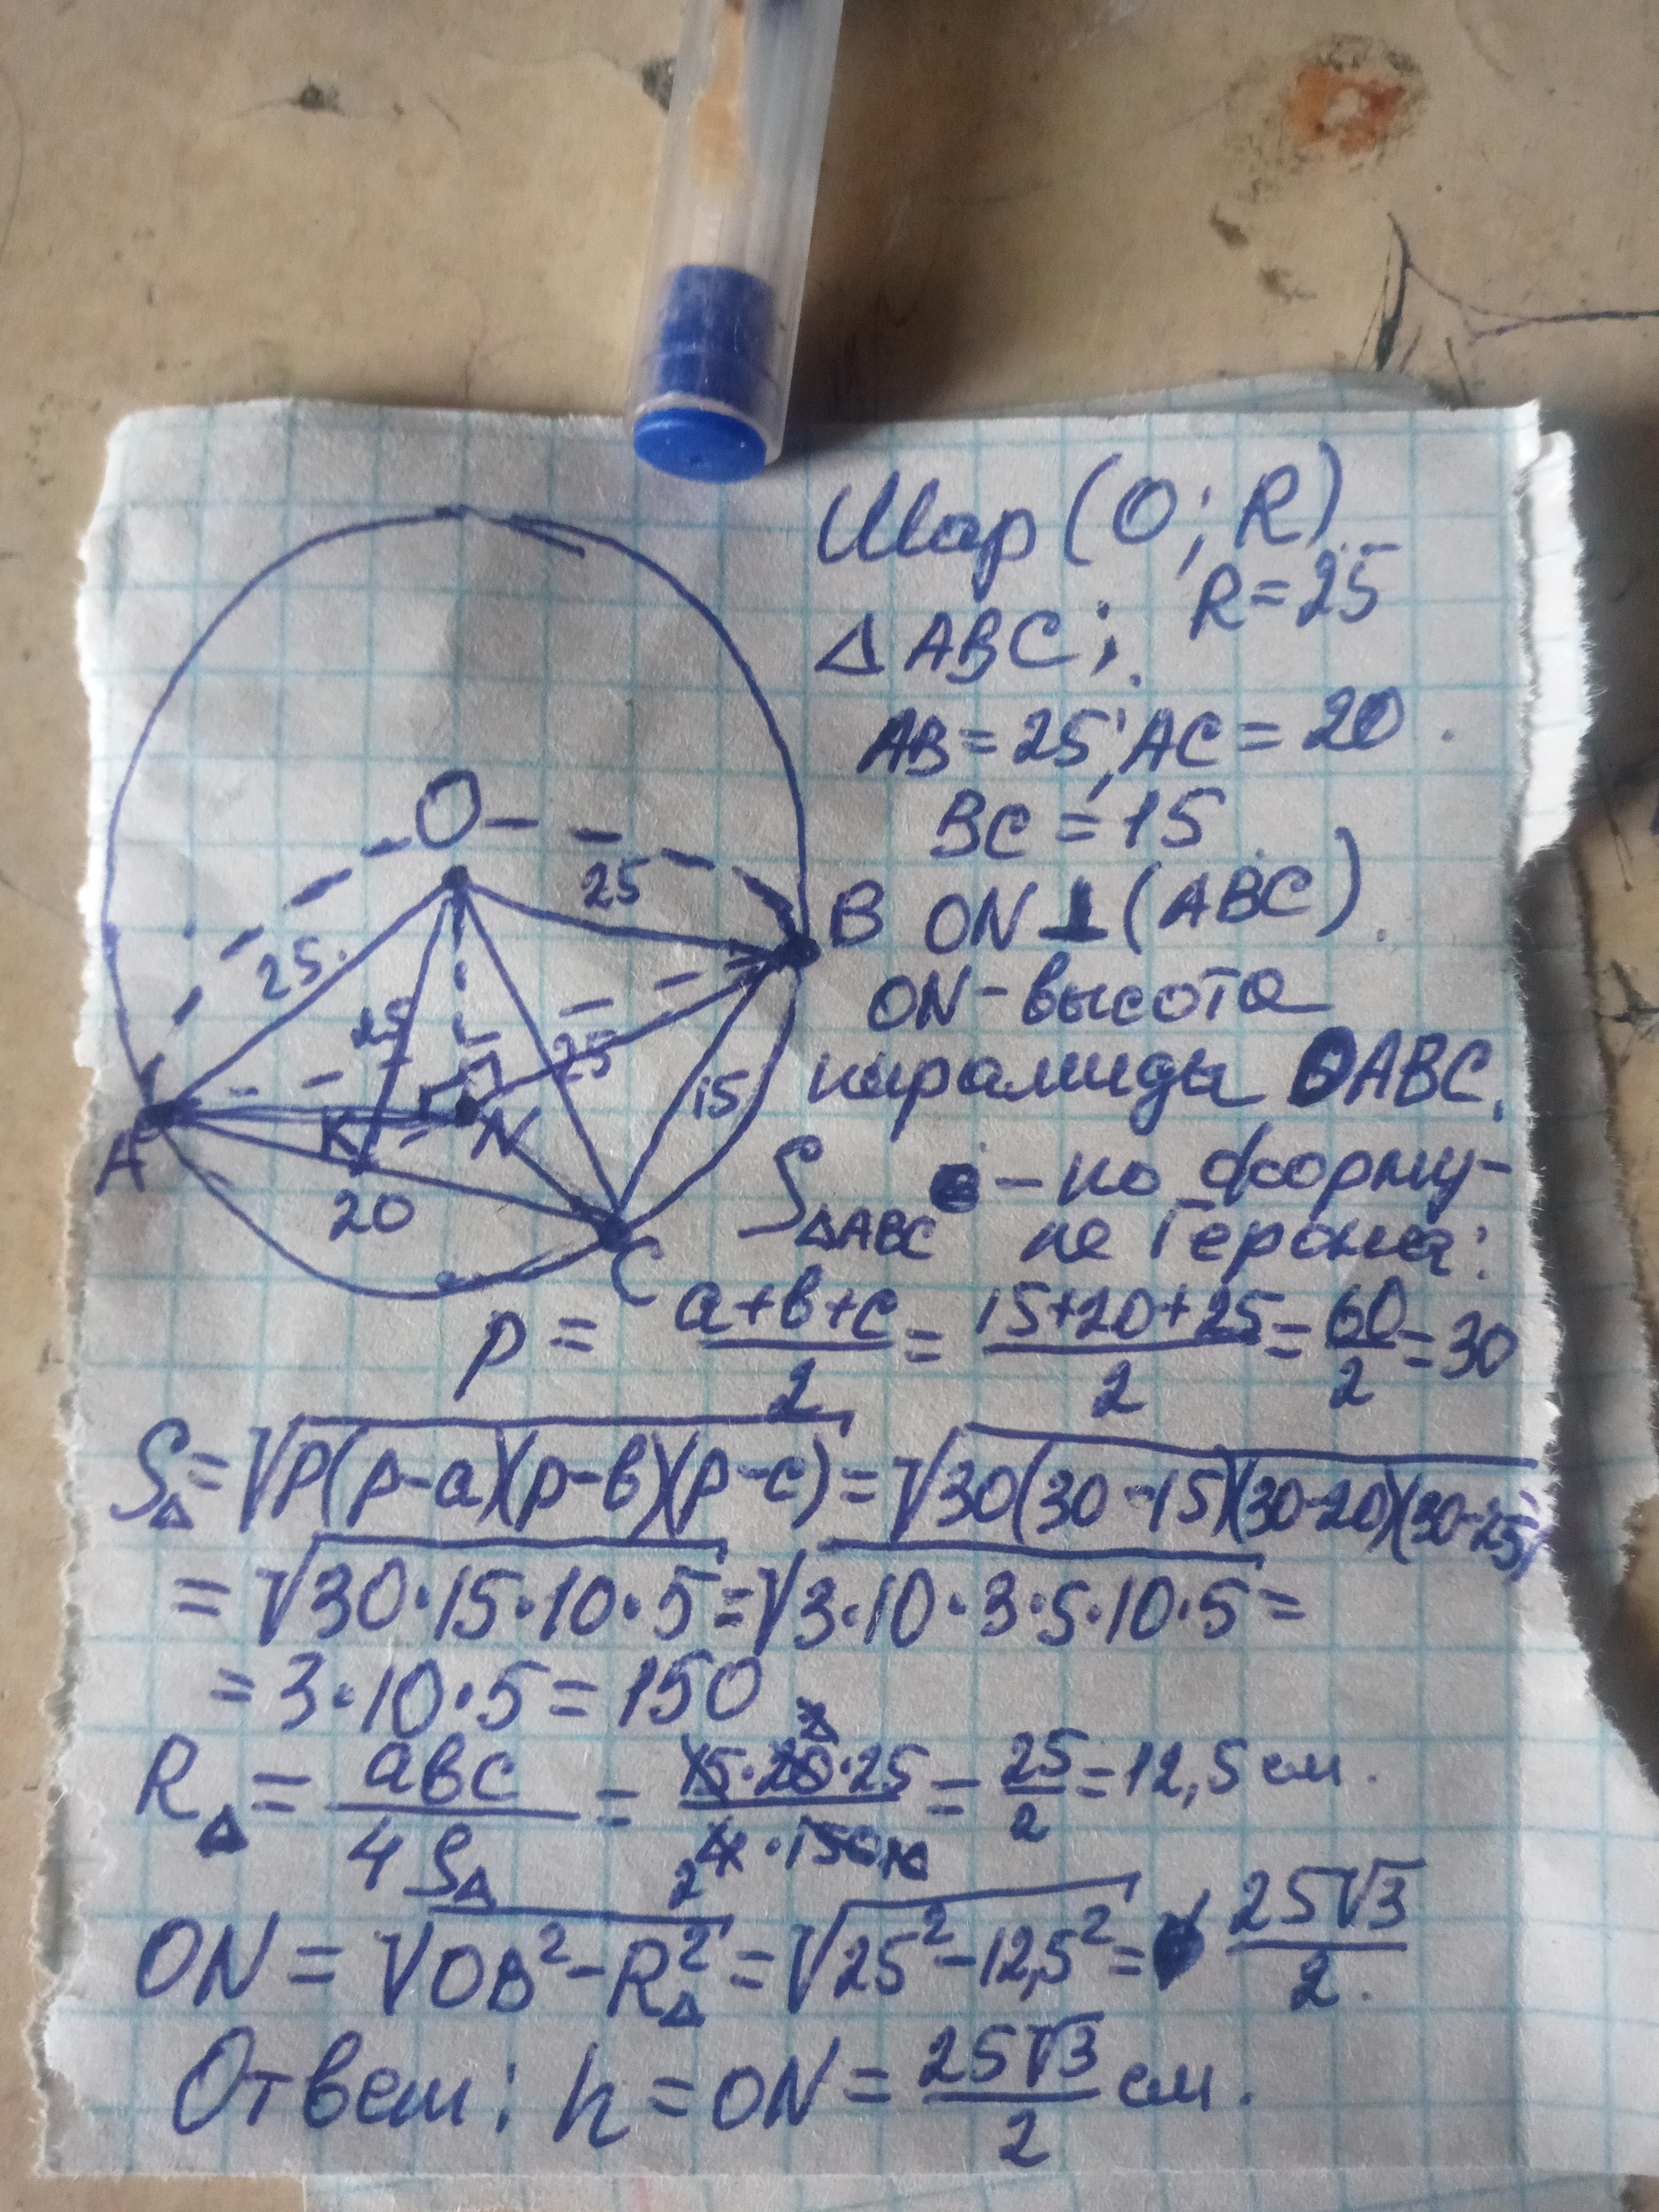 Шар (O; R)
R = 25
Δ ABC;
AB = 25; AC = 20.
BC = 15
ON ⊥ (ABC).
ON - высота
пирамиды OABC.
S ΔABC - по форму-
ле Герона:
O
25
B
25
25
25
15
A
K
N
20
C
p = (a+b+c)/2 = (15+20+25)/2 = 60/2 = 30
SΔ = √(p(p-a)(p-b)(p-c)) = √(30(30-15)(30-20)(30-25))
= √(30·15·10·5) = √(3·10·3·5·10·5) =
= 3·10·5 = 150
RΔ = abc/(4SΔ) = (15·20·25)/(4·150) = 25/2 = 12,5 см.
ON = √(OB² - RΔ²) = √(25² - 12,5²) = 25√3/2.
Ответ: h = ON = 25√3/2 см.